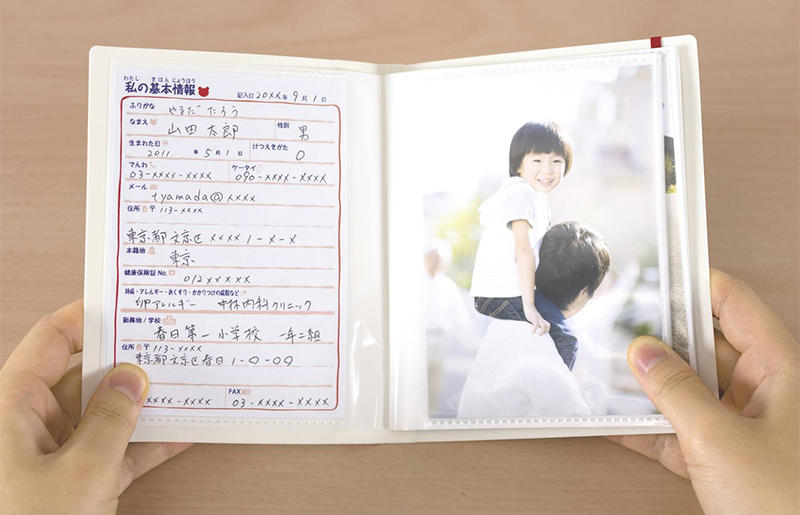 わたし きほんじょうほう
私の基本情報 記入日20XX年 9月1日
ふりがな やまだ たろう
なまえ 山田 太郎 性別 男
生まれた日 2011年 5月1日 けつえきがた O
でんわ 03-XXXX-XXXX ケータイ 090-XXXX-XXXX
メール tyamada@XXXX
住所 〒113-XXXX
東京都文京区XXXX 1-X-X
本籍地 東京
健康保険証No. 012XXXXX
持病・アレルギー・おくすり・かかりつけの病院など
卵アレルギー 中林内科クリニック
勤務地/学校 春日第一小学校 一年二組
住所 〒113-XXXX
東京都文京区春日1-0-00
FAX
XXX-XXXX 03-XXXX-XXXX